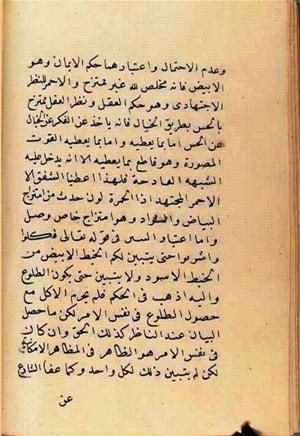 وعدم الاحتمال واعتبارهما حكم الايمان وهو
الابيض فانه مخلص لله غير ممتزج والاحمر للنظر
الاجتهادى وهو حكم العقل ونظر العقل ممتزج
بالحس بطريق الخيال فانه ياخذ عن الفكر عن الخيال
عن الحس اما بما يعطيه واما بما يعطيه القوت
المصورة وهو قاطع بما يعطيه الا انه يدخل عليه
الشبهه القادحة فلهذا اعطينا الشفق الا
الاحمر للمجتهد اذ الحمرة لون حدث من امتزاج
البياض والسواد وهو امتزاج خاص وصل
واما اعتبار السر فى قوله تعالى فكلوا
واشربوا حتى يتبين لكم الخيط الابيض من
الخيط الاسود ولا يتبين حتى يكون الطلوع
واليه اذهب فى الحكم فلم يحرم الاكل مع
حصول الطلوع فى نفس الامر لكن ما حصل
البيان عند الناظر كذلك الحق وان كان
فى نفس الامر هو الظاهر فى المظاهر الامكانية
لكن لم يتبين ذلك لكل واحد وكما عفا الشارع
عن